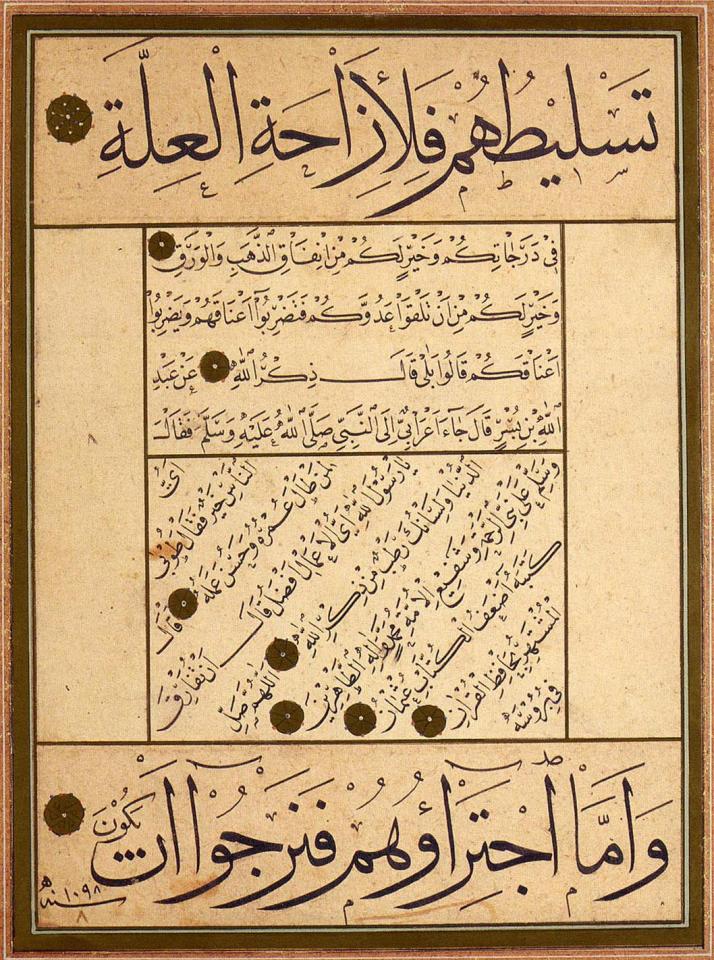 تسليطهم فلازاحة العلة
في درجاتكم وخير لكم من انفاق الذهب والورق
وخير لكم من ان تلقوا عدوكم فتضربوا اعناقهم ويضربوا
اعناقكم قالوا بلى قال ذكر الله عن عبد
الله بن بسر قال جاء اعرابي الى النبي صلى الله عليه وسلم فقال
اي
الناس خير فقال طوبى
لمن طال عمره وحسن عمله قال
يا رسول الله اي الاعمال افضل قال ان تفارق
الدنيا ولسانك رطب من ذكر الله اللهم صل
وسلم على نبي الرحمة وشفيع الامة محمد واله الطاهرين
كتبه اضعف الكتاب عثمان
المشتهر بحافظ القران
في بروسه
واما اجتراؤهم فنرجوا ان يكون
سنه ١٠٩٨